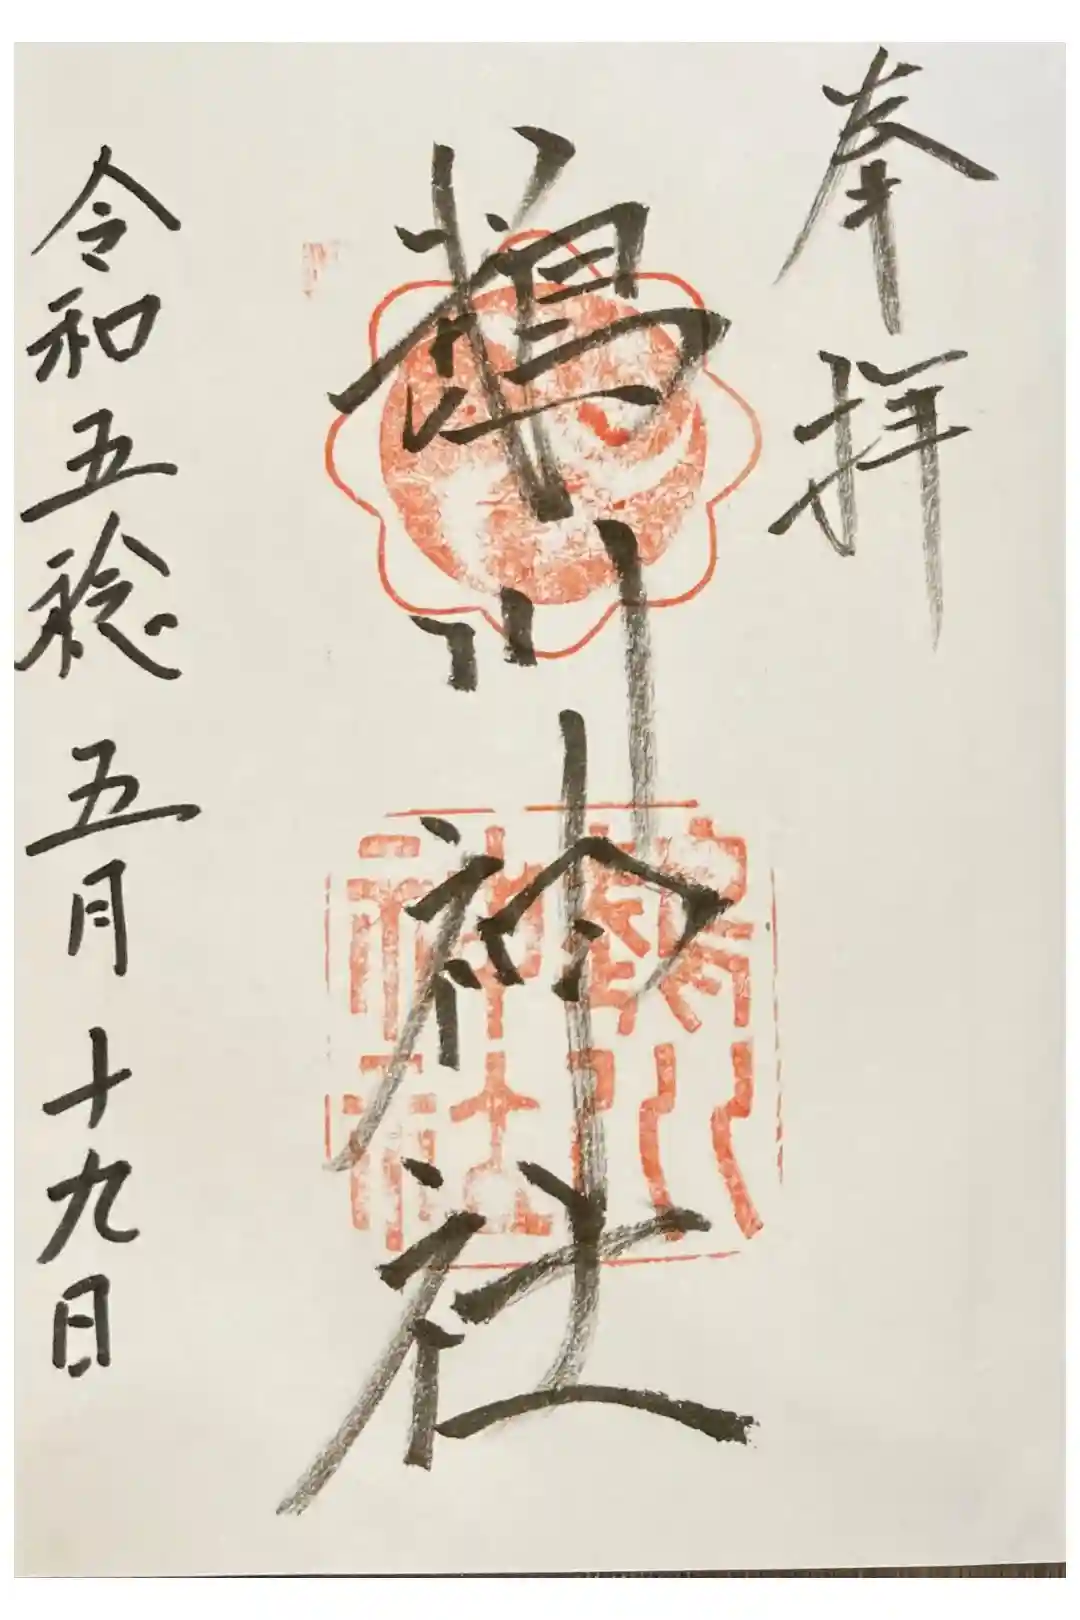 奉拝
鵡川神社
鵡川
神社
令和五稔五月十九日